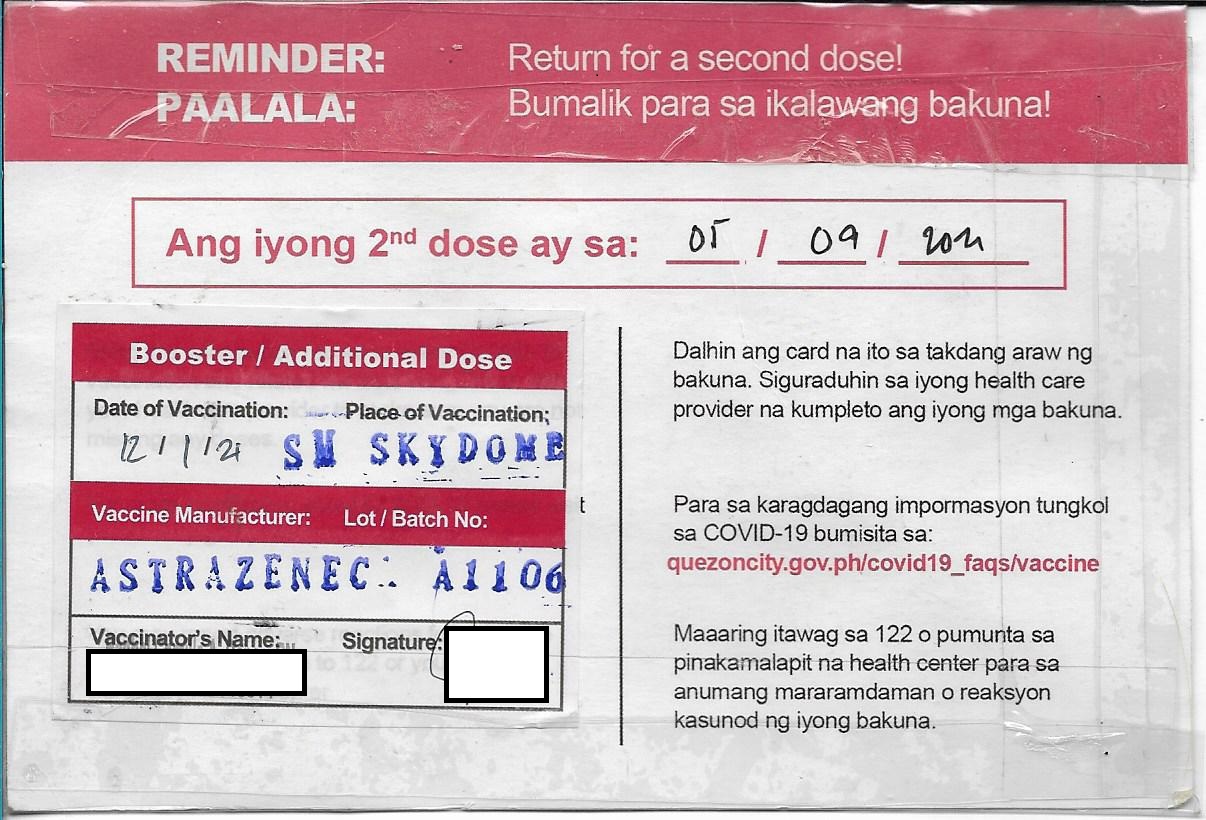 REMINDER: Return for a second dose!
PAALALA: Bumalik para sa ikalawang bakuna!
Ang iyong 2nd dose ay sa: 05 / 09 / 2021
Booster / Additional Dose
Date of Vaccination: Place of Vaccination:
12/1/21 SM SKYDOME
Vaccine Manufacturer: Lot / Batch No:
ASTRAZENEC A1106
Vaccinator's Name: Signature:
Dalhin ang card na ito sa takdang araw ng
bakuna. Siguraduhin sa iyong health care
provider na kumpleto ang iyong mga bakuna.
Para sa karagdagang impormasyon tungkol
sa COVID-19 bumisita sa:
quezoncity.gov.ph/covid19_faqs/vaccine
Maaaring itawag sa 122 o pumunta sa
pinakamalapit na health center para sa
anumang mararamdaman o reaksyon
kasunod ng iyong bakuna.